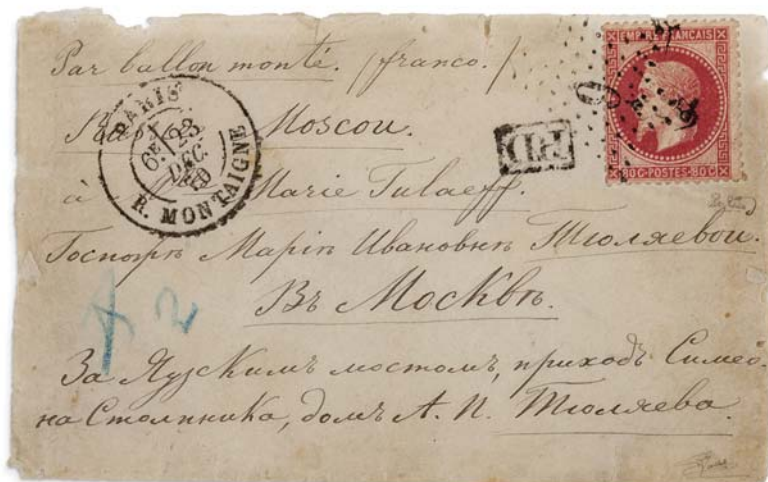 Par ballon monté. (franco.)
EMPIRE FRANÇAIS
80C·POSTES·80C
PARIS
6E 23
DÉC.
R. MONTAIGNE
P.D
Moscou.
à Marie Tulaeff.
Госпожѣ Маріи Ивановнѣ Тюляевой.
Въ Москвѣ.
2
За Яузскимъ мостомъ, приходъ Симео-
на Столпника, домъ А. И. Тюляева.